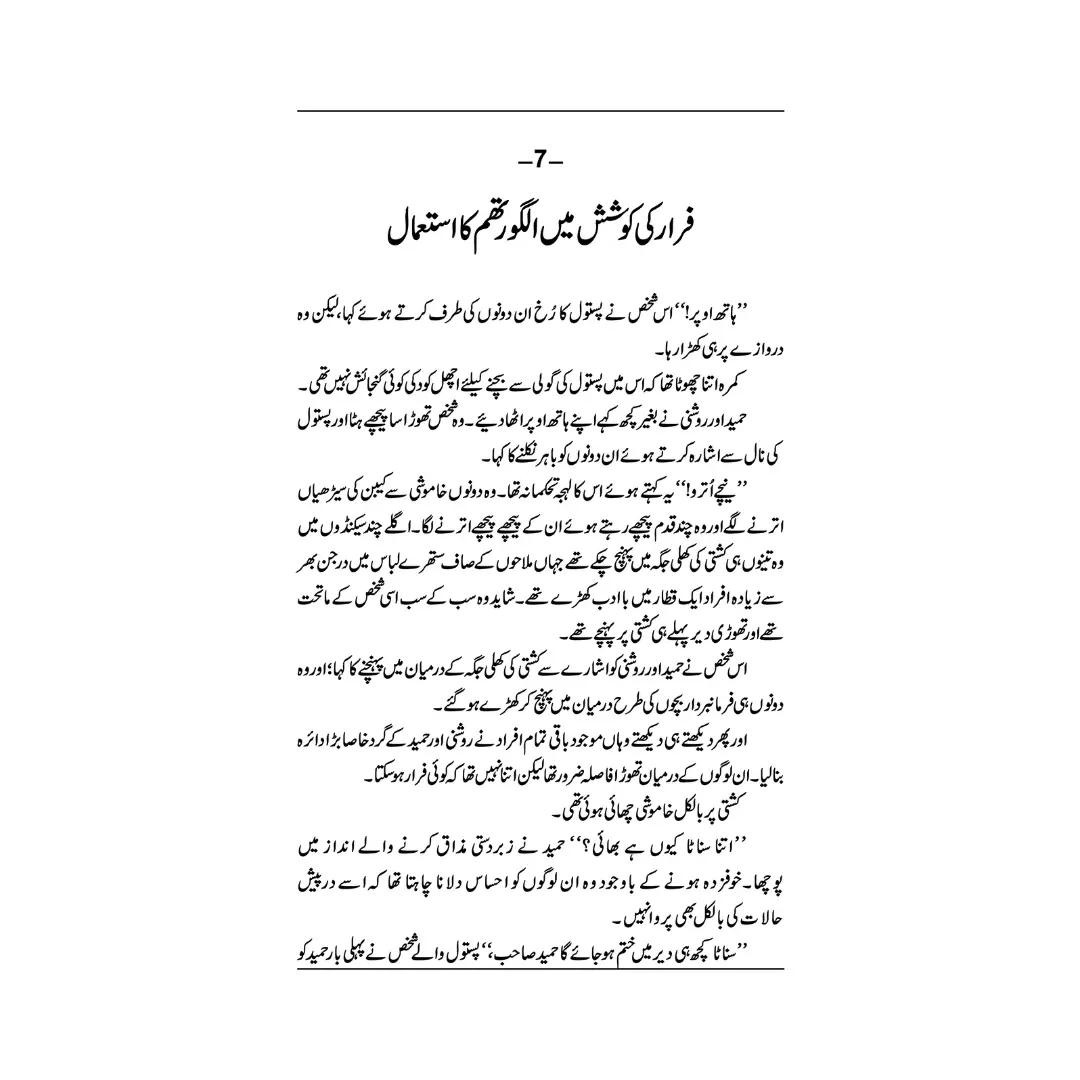 –7–
فرار کی کوشش میں الگورتھم کا استعمال
’’ہاتھ اوپر!‘‘ اس شخص نے پستول کا رُخ ان دونوں کی طرف کرتے ہوئے کہا، لیکن وہ
دروازے پر ہی کھڑا رہا۔
کمرہ اتنا چھوٹا تھا کہ اس میں پستول کی گولی سے بچنے کیلئے اچھل کود کی کوئی گنجائش نہیں تھی۔
حمید اور روشنی نے بغیر کچھ کہے اپنے ہاتھ اوپر اٹھا دیئے۔ وہ شخص تھوڑا سا پیچھے ہٹا اور پستول
کی نال سے اشارہ کرتے ہوئے ان دونوں کو باہر نکلنے کا کہا۔
’’نیچے اُترو!‘‘ یہ کہتے ہوئے اس کا لہجہ تحکمانہ تھا۔ وہ دونوں خاموشی سے کیبن کی سیڑھیاں
اترنے لگے اور وہ چند قدم پیچھے رہتے ہوئے ان کے پیچھے پیچھے اترنے لگا۔ اگلے چند سیکنڈوں میں
وہ تینوں ہی کشتی کی کھلی جگہ میں پہنچ چکے تھے جہاں ملاحوں کے صاف ستھرے لباس میں درجن بھر
سے زیادہ افراد ایک قطار میں با ادب کھڑے تھے۔ شاید وہ سب کے سب اسی شخص کے ماتحت
تھے اور تھوڑی دیر پہلے ہی کشتی پر پہنچے تھے۔
اس شخص نے حمید اور روشنی کو اشارے سے کشتی کی کھلی جگہ کے درمیان میں پہنچنے کا کہا؛ اور وہ
دونوں ہی فرمانبردار بچوں کی طرح درمیان میں پہنچ کر کھڑے ہو گئے۔
اور پھر دیکھتے ہی دیکھتے وہاں موجود باقی تمام افراد نے روشنی اور حمید کے گرد خاصا بڑا دائرہ
بنا لیا۔ ان لوگوں کے درمیان تھوڑا فاصلہ ضرور تھا لیکن اتنا نہیں تھا کہ کوئی فرار ہو سکتا۔
کشتی پر بالکل خاموشی چھائی ہوئی تھی۔
’’اتنا سناٹا کیوں ہے بھائی؟‘‘ حمید نے زبردستی مذاق کرنے والے انداز میں
پوچھا۔ خوفزدہ ہونے کے باوجود وہ ان لوگوں کو احساس دلانا چاہتا تھا کہ اسے درپیش
حالات کی بالکل بھی پروا نہیں۔
’’سناٹا کچھ ہی دیر میں ختم ہو جائے گا حمید صاحب،‘‘ پستول والے شخص نے پہلی بار حمید کو